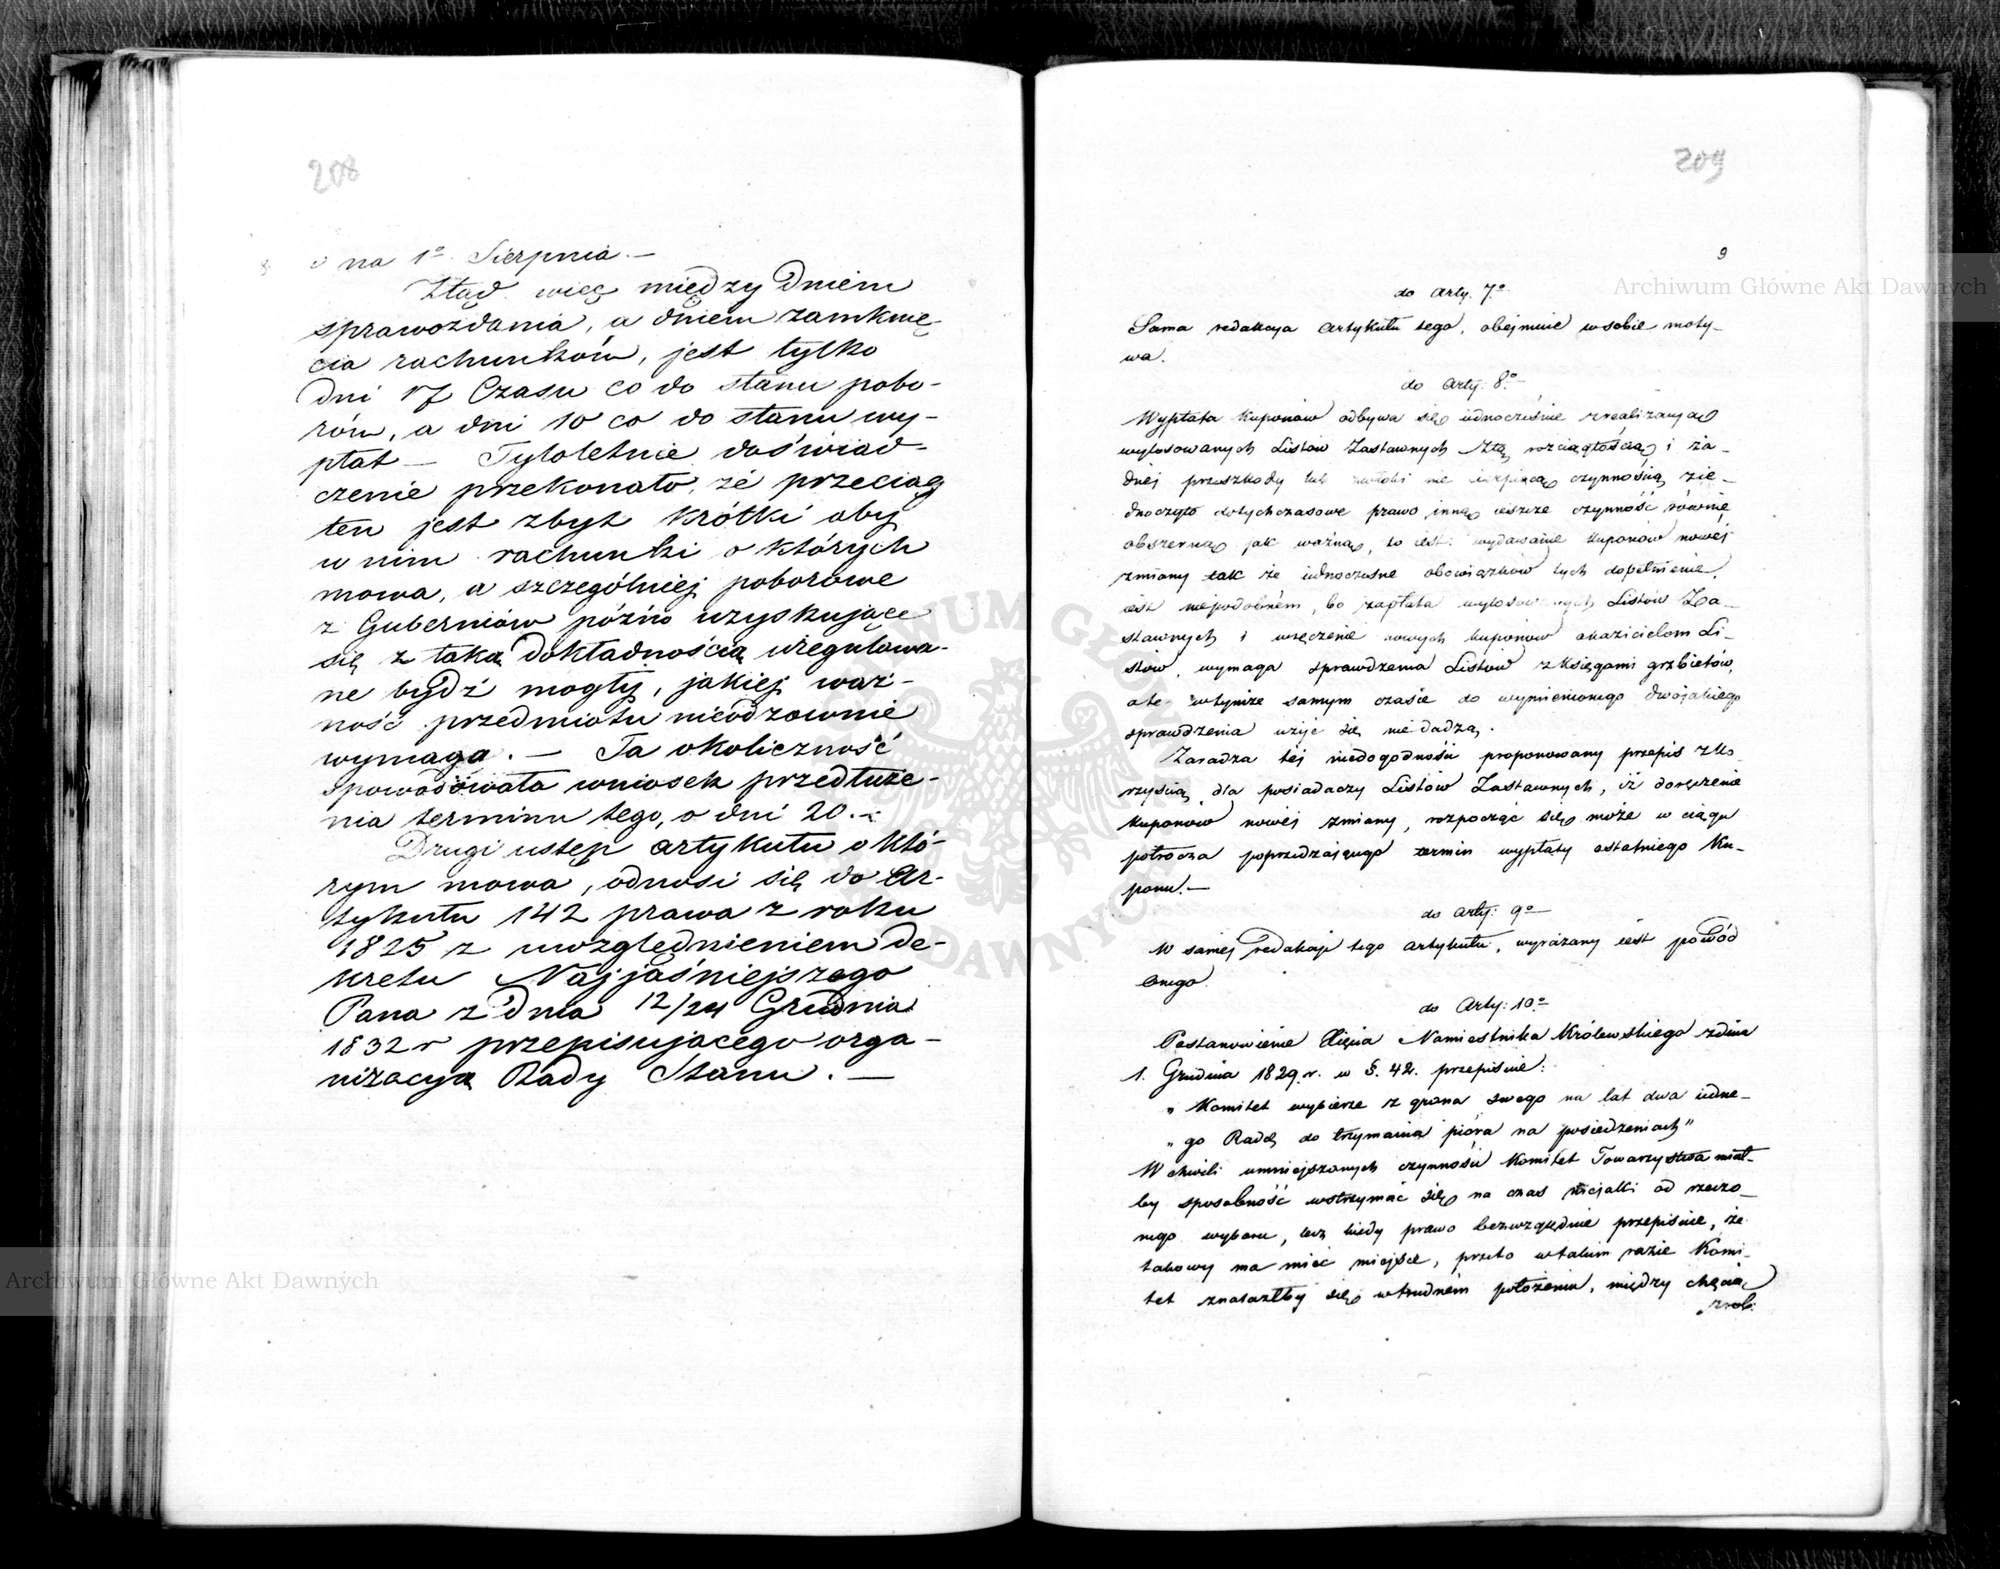 208
na 1o Sierpnia. —
Ztąd więc między Dniem
sprawozdania, a dniem zamknię-
cia rachunków, jest tylko
Dni 17 Czasu co do stanu pobo-
rów, a dni 10 co do stanu wy-
płat — Tyloletnie doświad-
czenie przekonało, że przeciąg
ten jest zbyt krótki aby
w nim rachunki o których
mowa, a szczególniej poborowe
z Guberniów późno uzyskujące
się z taką Dokładnością uregulowa-
ne bydź mogły, jakiej waż-
ność przedmiotu nieodzownie
wymaga. — Ta okoliczność
spowodowała wniosek przedłuże-
nia terminu tego, o dni 20. —
Drugi ustęp artykułu o któ-
rym mowa, odnosi się do Ar-
tykułu 142 prawa z roku
1825 z uwzględnieniem de-
kretu Najjaśniejszego
Pana z Dnia 12/24 Grudnia
1832 r przepisującego orga-
nizacyą Rady Stanu. —
209
9
do Arty. 7o
Sama redakcya Artykułu tego, obejmuie w sobie moty-
wa.
do Arty: 8o
Wypłata kuponów odbywa się iednocześnie z realizacyą
wylosowanych Listów Zastawnych. Z tą rozciągłością i ża-
dnéj przeszkody lub nie cierpiącą czynnością zie-
dnoczyło dotychczasowe prawo inną ieszcze czynność równie
obszerną jak ważną, to iest: wydawanie kuponów nowéj
zmiany tak że iednoczesne obowiązków tych dopełnienie,
iest niepodobném, bo zapłata wylosowanych Listów Za-
stawnych i wręczenie nowych kuponów okazicielom Li-
stów, wymaga sprawdzenia Listów z księgami grzbietów,
ale w tymże samym czasie do wymienionego dwojakiego
sprawdzenia użyć się nie dadzą.
Zaradza téj niedogodności proponowany przepis z ko-
rzyścią dla posiadaczy Listów Zastawnych, iż doręczenie
kuponów nowéj zmiany, rozpocząć się może w ciągu
półrocza poprzedzającego termin wypłaty ostatniego Ku-
ponu. —
do Arty: 9o
W saméj redakcyi tego artykułu, wyrażany iest powód
onego.
do Arty: 10o
Postanowienie Xięcia Namiestnika Królewskiego z dnia
1. Grudnia 1829. r. w §. 42. przepisuie:
„ Komitet wybierze z grona swego na lat dwa iedne-
„ go Radcę do trzymania pióra na posiedzeniach"
W chwili umniejszonych czynności Komitet Towarzystwa miał-
by sposobność wstrzymać się na czas niejaki od rzeczo-
nego wyboru, lecz kiedy prawo bezwzględnie przepisuie, że
takowy ma mieć miejsce, przeto w takim razie Komi-
tet znalazłby się w trudném położeniu, między chęcią
zrob:
Archiwum Główne Akt Dawnych
Archiwum Główne Akt Dawnych